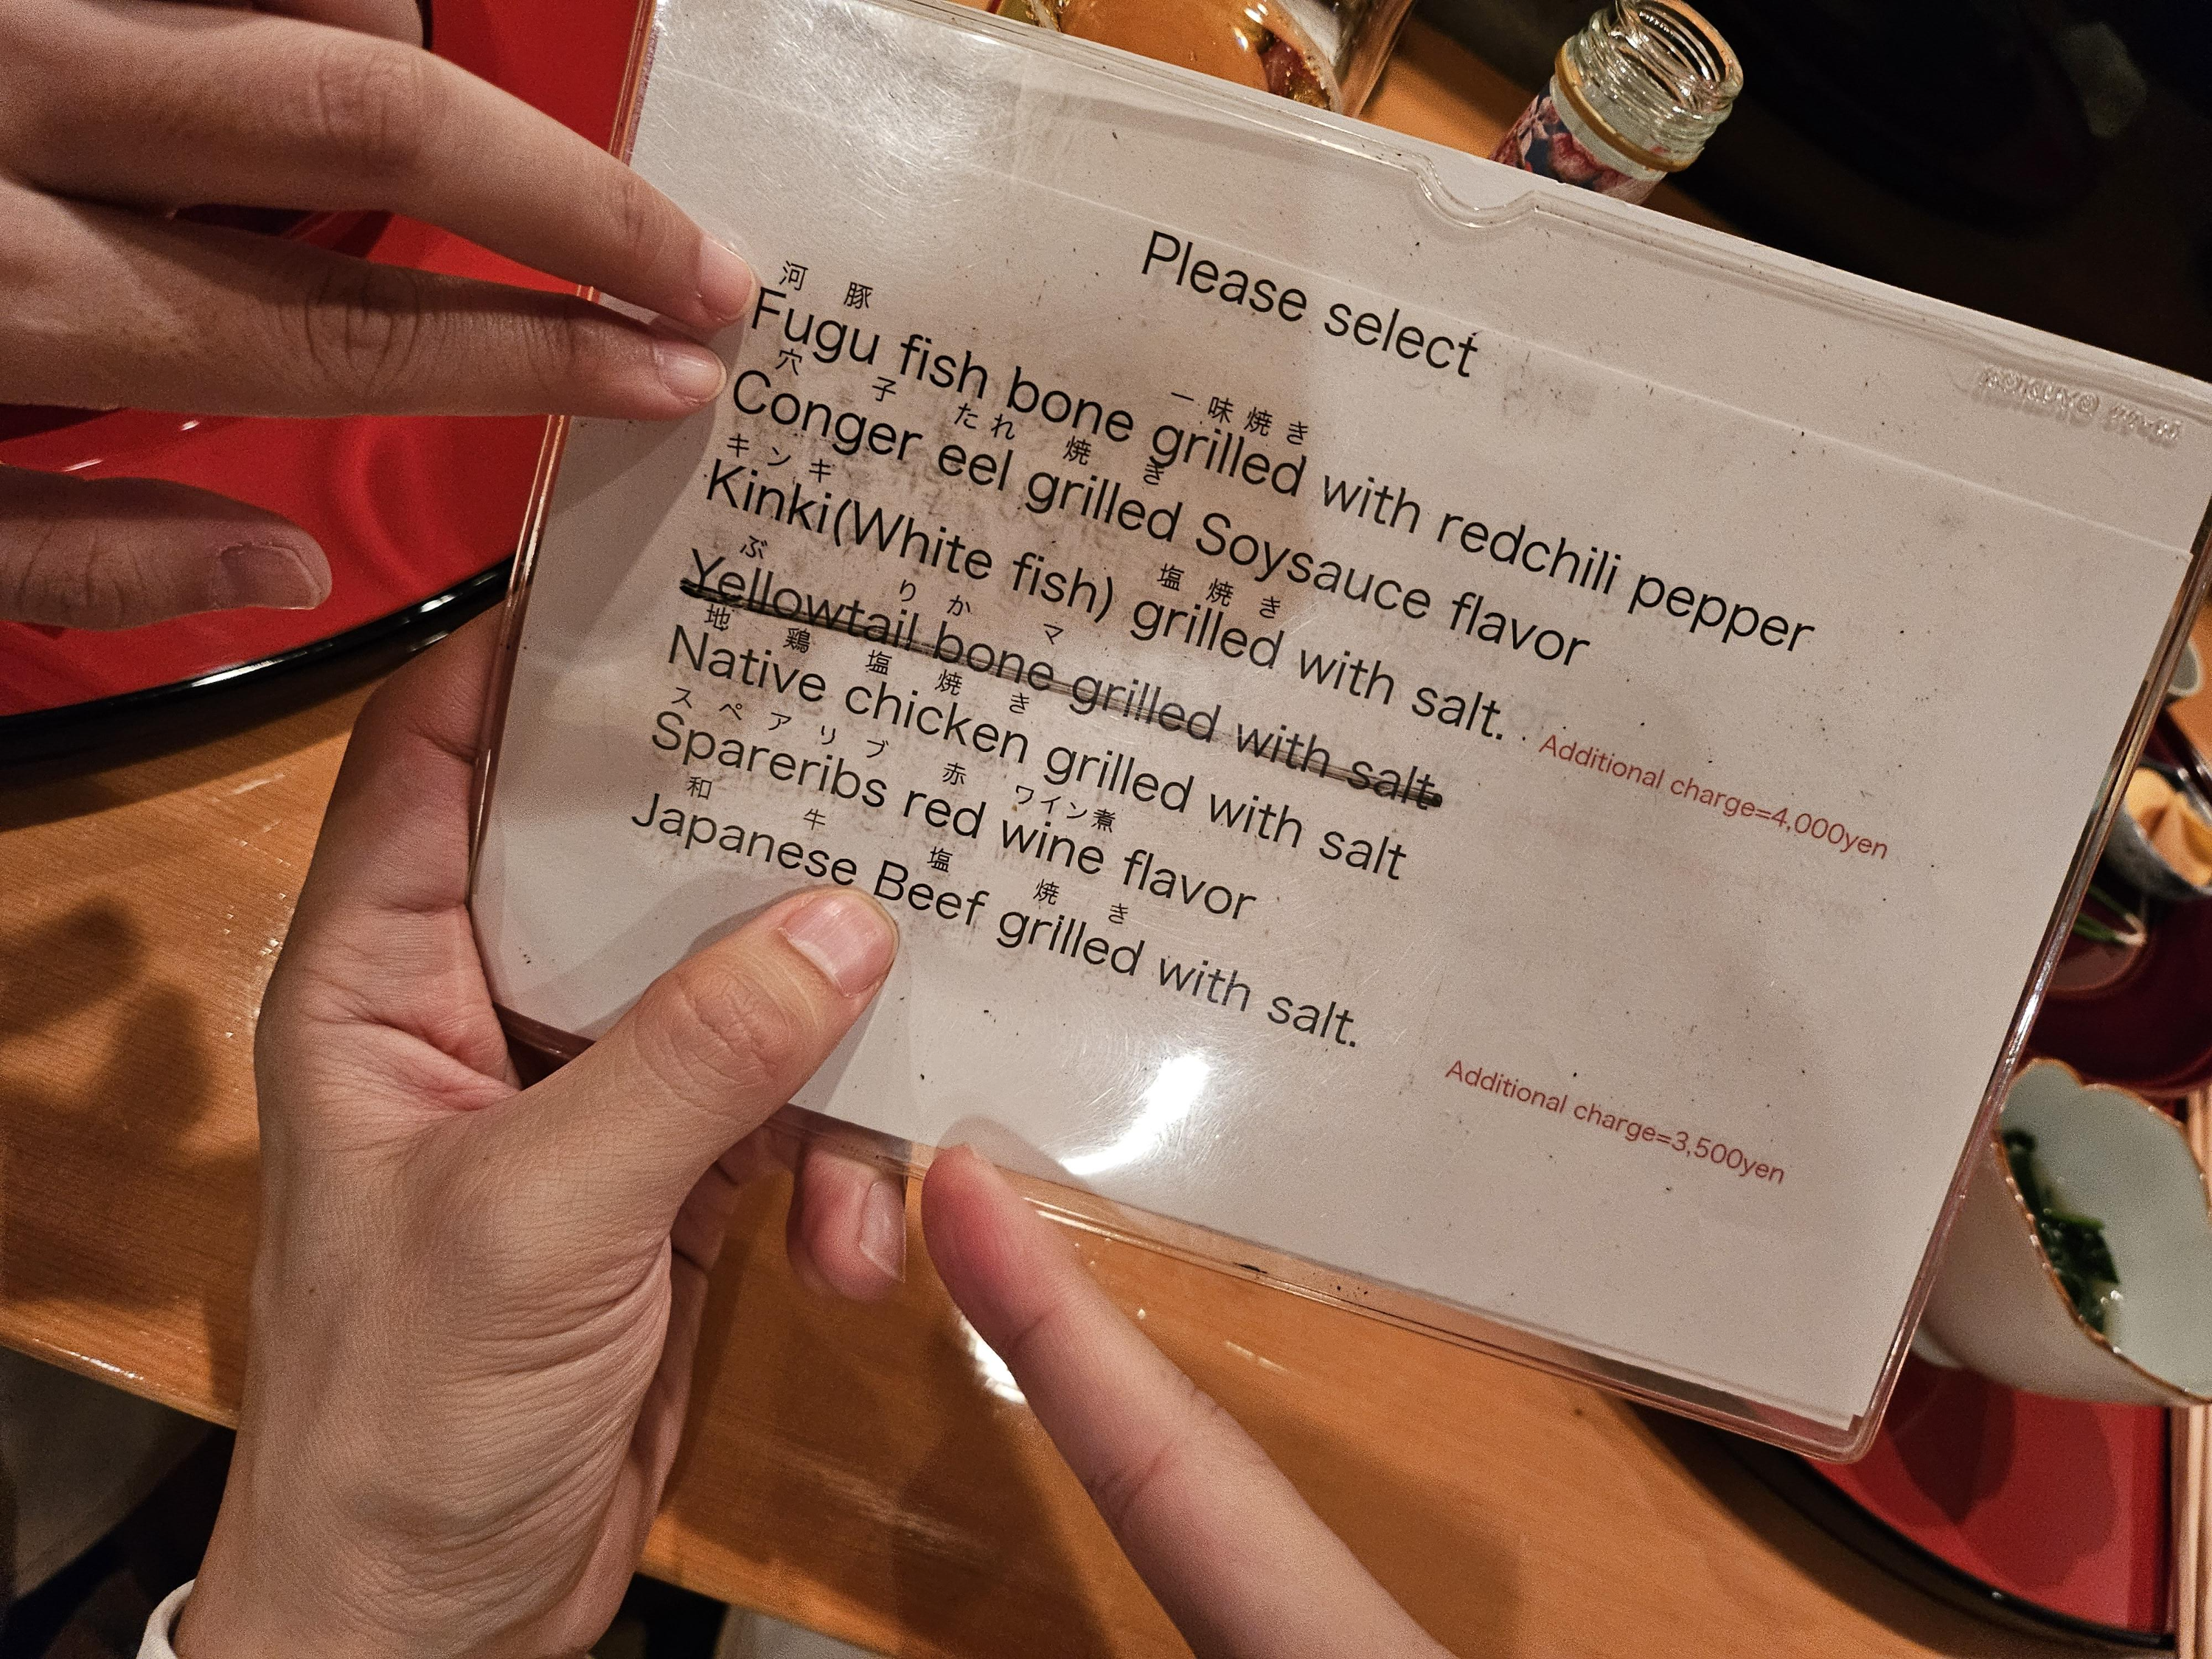 Please select
河豚 一味焼き
Fugu fish bone grilled with redchili pepper
穴子 たれ焼き
Conger eel grilled Soysauce flavor
キンキ 塩焼き
Kinki(White fish) grilled with salt. Additional charge=4,000yen
ぶりかマ
Yellowtail bone grilled with salt.
地鶏塩焼き
Native chicken grilled with salt
スペアリブ 赤ワイン煮
Spareribs red wine flavor
和牛 塩焼き
Japanese Beef grilled with salt. Additional charge=3,500yen